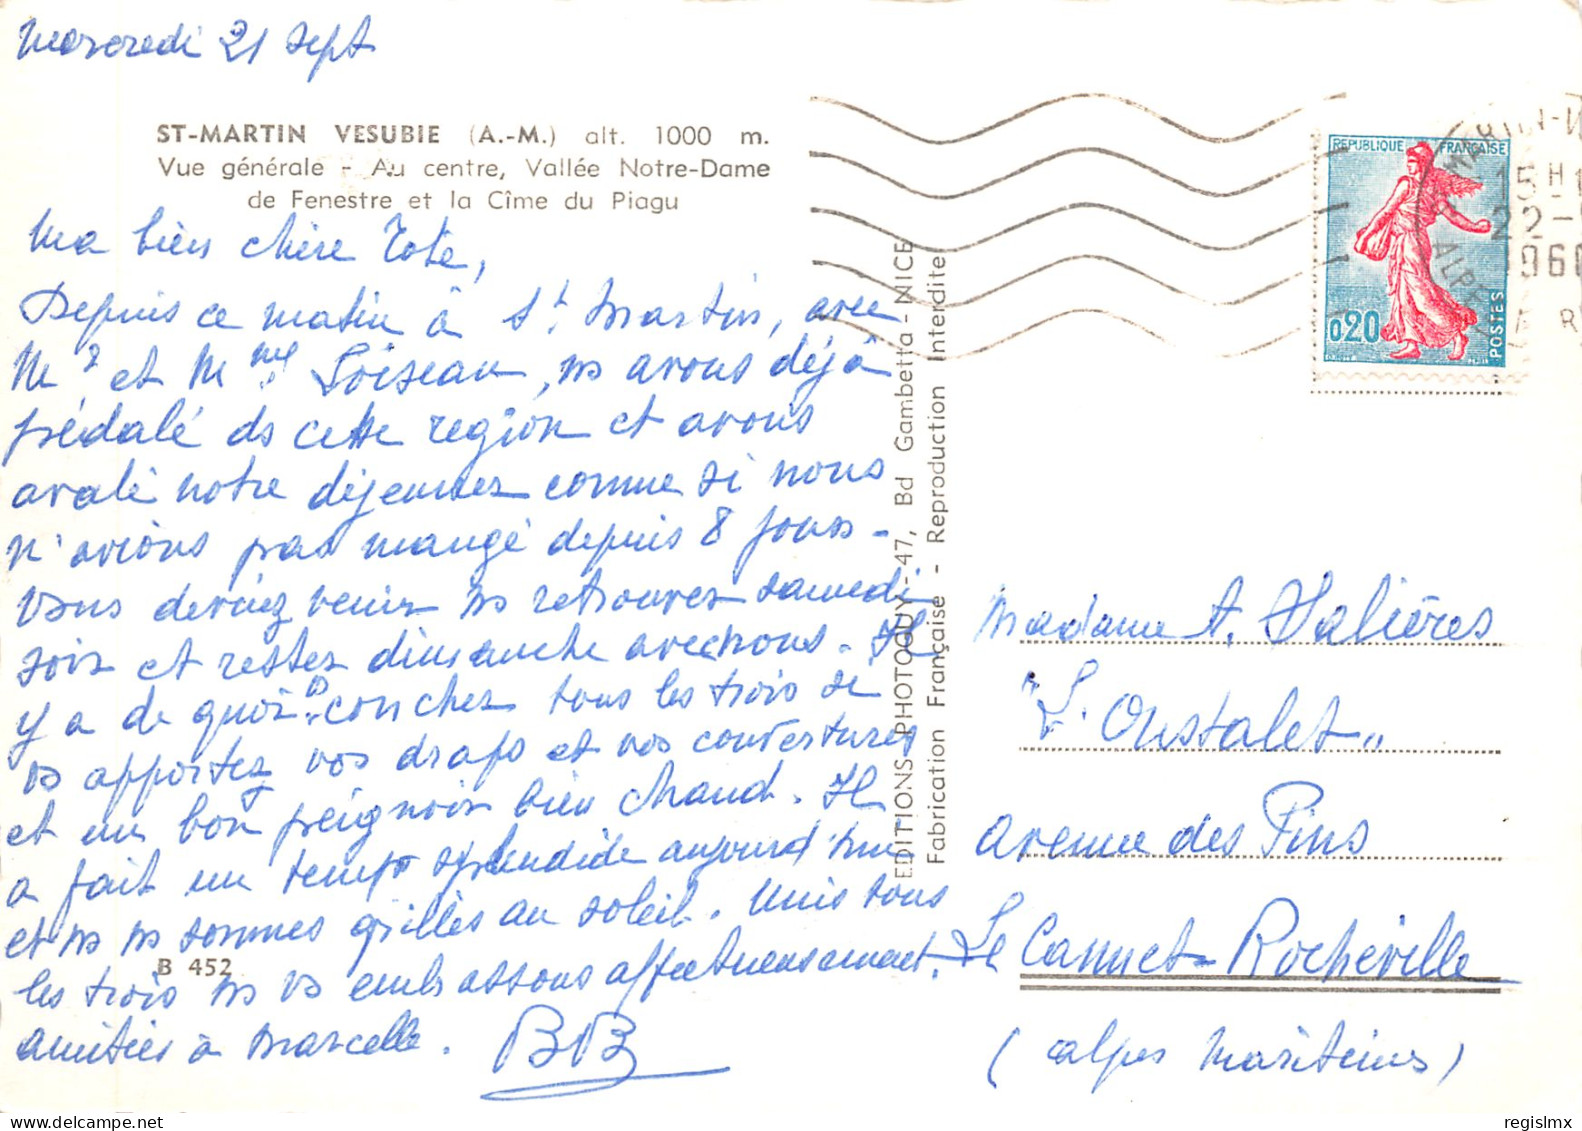 Mercredi 21 sept
ST-MARTIN VESUBIE (A.-M.) alt. 1000 m.
Vue générale - Au centre, Vallée Notre-Dame
de Fenestre et la Cîme du Piagu
Ma bien chère Tote,
Depuis ce matin à St Martin, avec
Mr et Mme Loiseau, ns avons déjà
pédalé ds cette région et avons
avalé notre déjeuner comme si nous
n'avions pas mangé depuis 8 jours -
Vous devriez venir ns retrouver samedi
soir et rester dimanche avec nous. Il
y a de quoi coucher tous les trois si
vs apportez vos draps et vos couvertures
et un bon peignoir bien chaud. Il
a fait un temps splendide aujourd'hui
et ns ns sommes grillés au soleil. Unis tous
les trois ns vs embrassons affectueusement.
amitiés à Marcelle. BB
B 452
EDITIONS PHOTOGUY - 47, Bd Gambetta - NICE
Fabrication Française - Reproduction Interdite
REPUBLIQUE FRANÇAISE
0,20
POSTES
MARTIN-V
15H
22-
1960
ALPE
Madame A. Valières
"L'Oustalet"
avenue des Pins
Le Cannet-Rocheville
(alpes maritimes)
regislmx